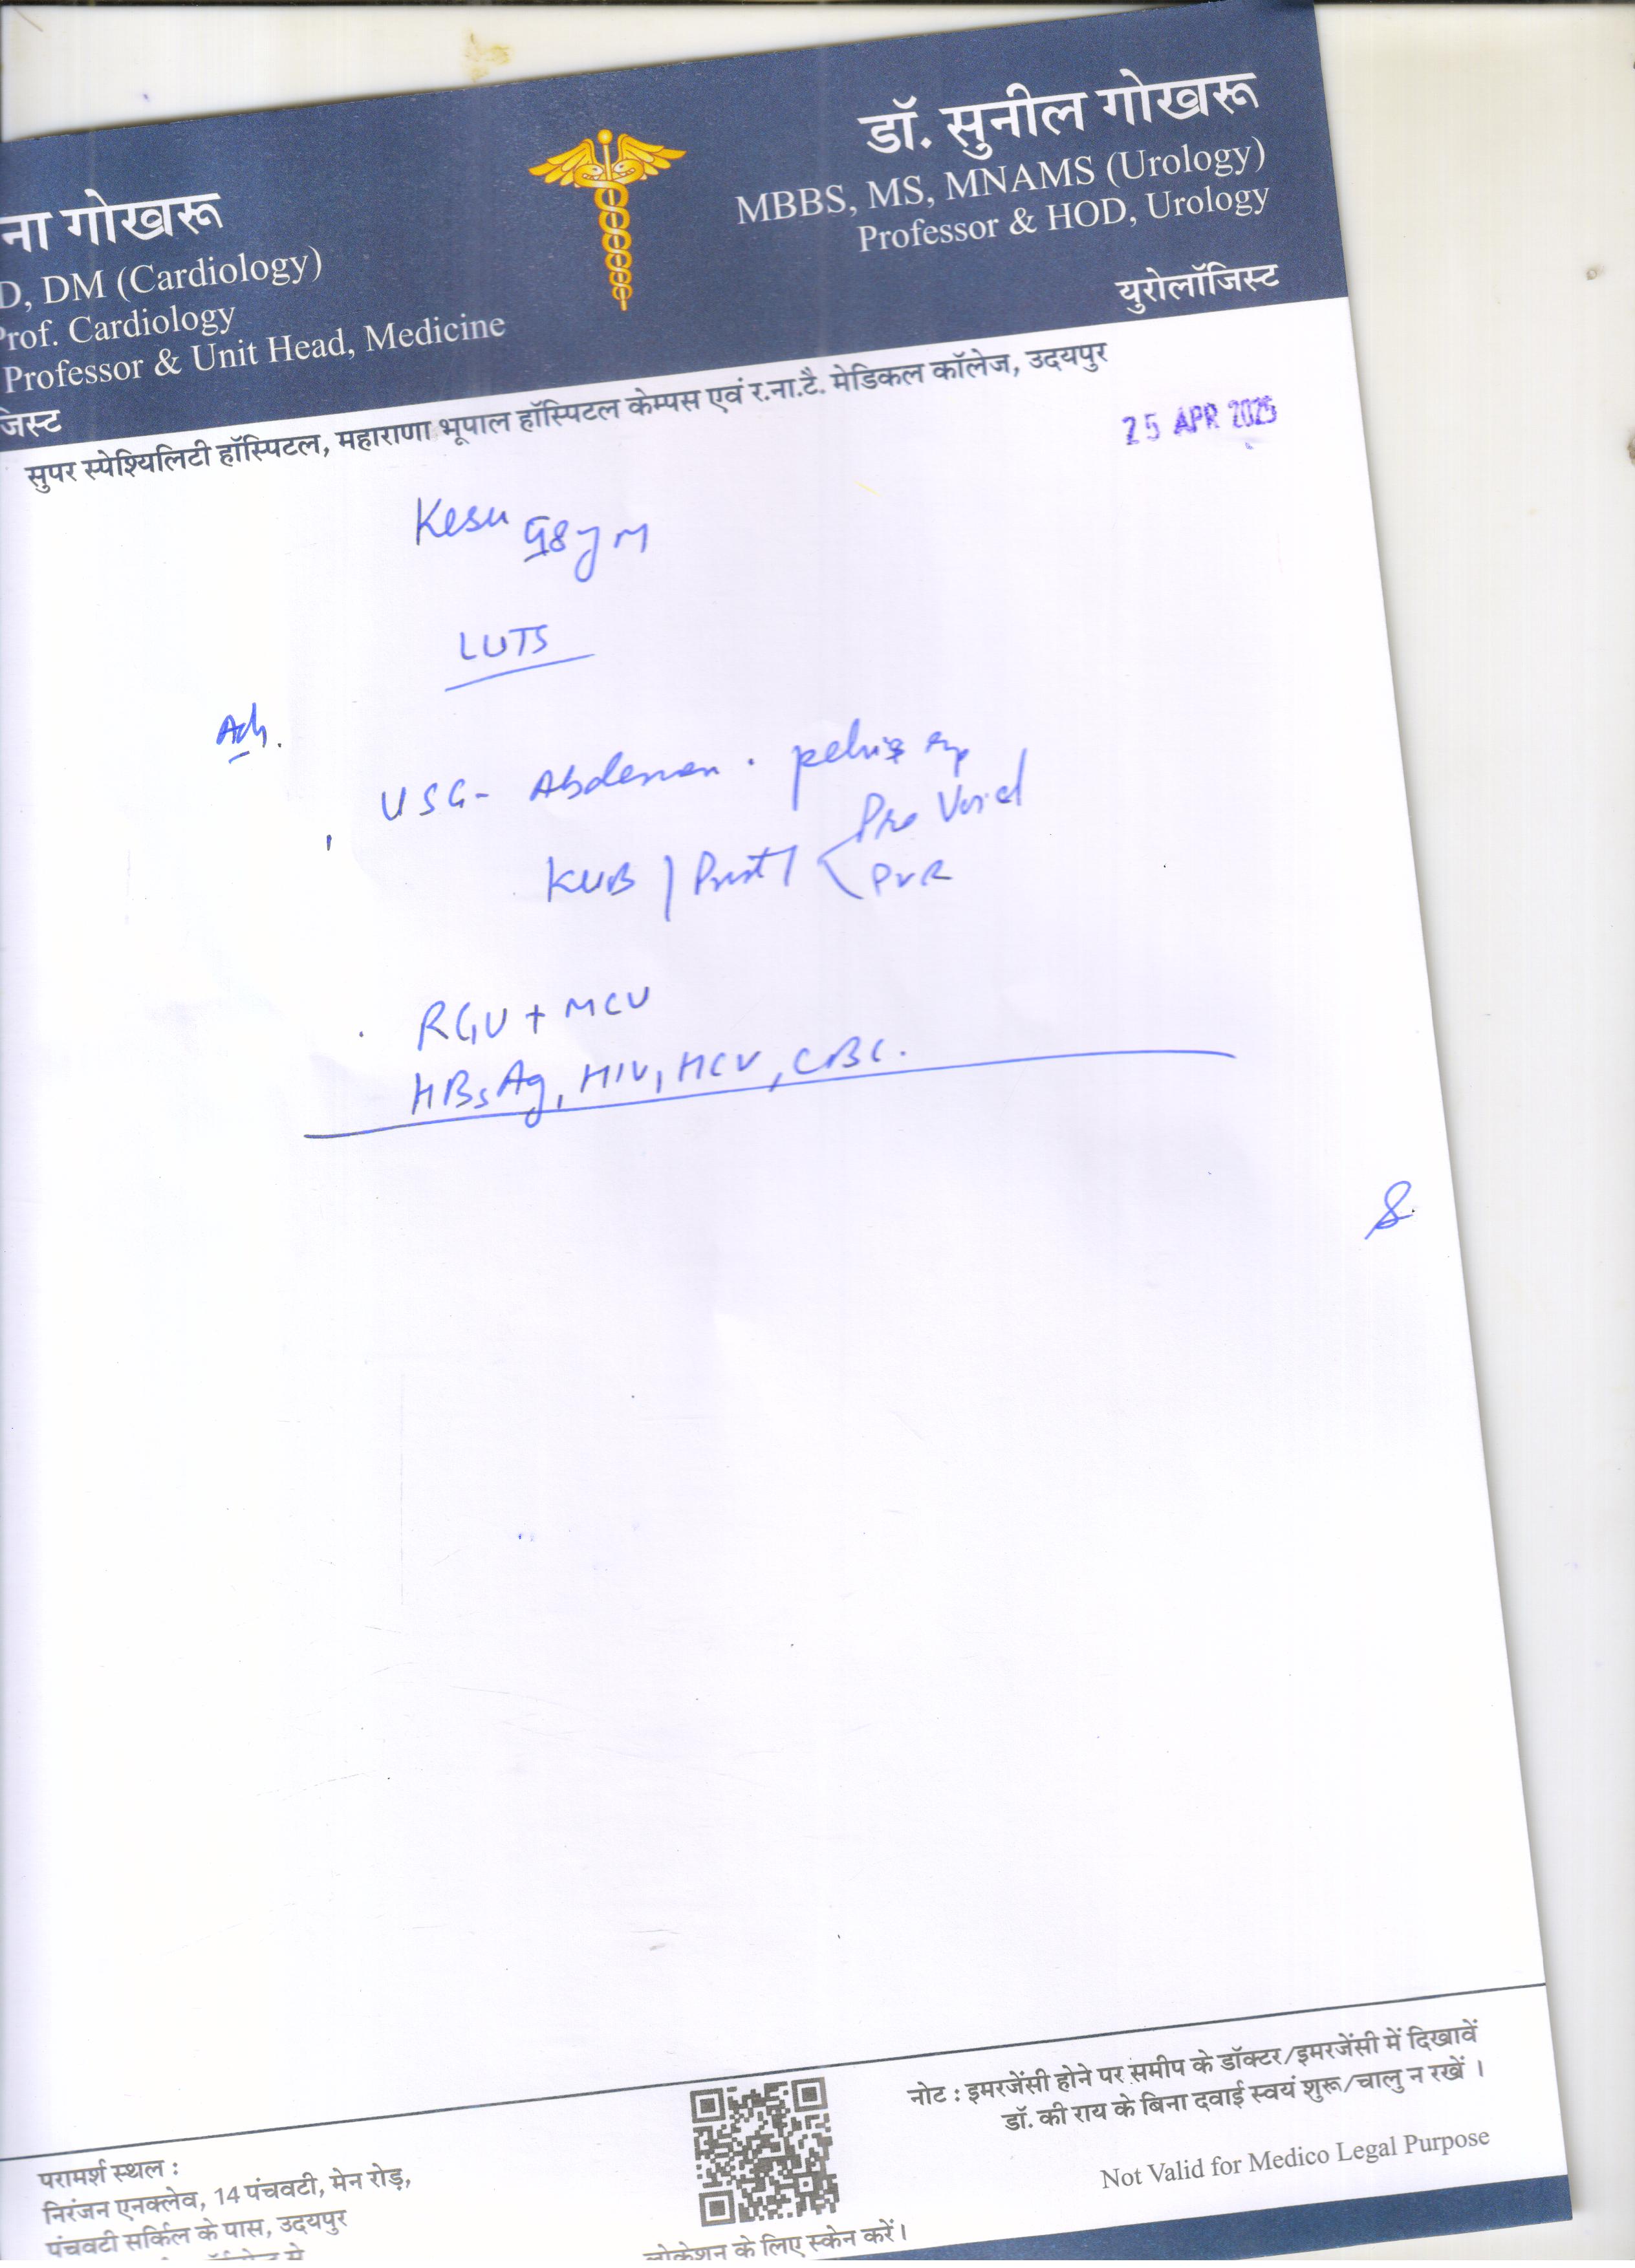 डॉ. सुनील गोखरू
MBBS, MS, MNAMS (Urology)
Professor & HOD, Urology
युरोलॉजिस्ट
ना गोखरू
D, DM (Cardiology)
Prof. Cardiology
Professor & Unit Head, Medicine
जिस्ट
सुपर स्पेश्यिलिटी हॉस्पिटल, महाराणा भूपाल हॉस्पिटल केम्पस एवं र.ना.टै. मेडिकल कॉलेज, उदयपुर
25 APR 2025
Kesu
LUTS
Adv.
USG- Abdomen . pelvis
KUB / Prost / Pre Void
PVR
RGU + MCU
HBsAg, HIV, HCV, CBC.
नोट : इमरजेंसी होने पर समीप के डॉक्टर/इमरजेंसी में दिखावें
डॉ. की राय के बिना दवाई स्वयं शुरू/चालु न रखें ।
Not Valid for Medico Legal Purpose
परामर्श स्थल :
निरंजन एनक्लेव, 14 पंचवटी, मेन रोड़,
पंचवटी सर्किल के पास, उदयपुर
लोकेशन के लिए स्केन करें।